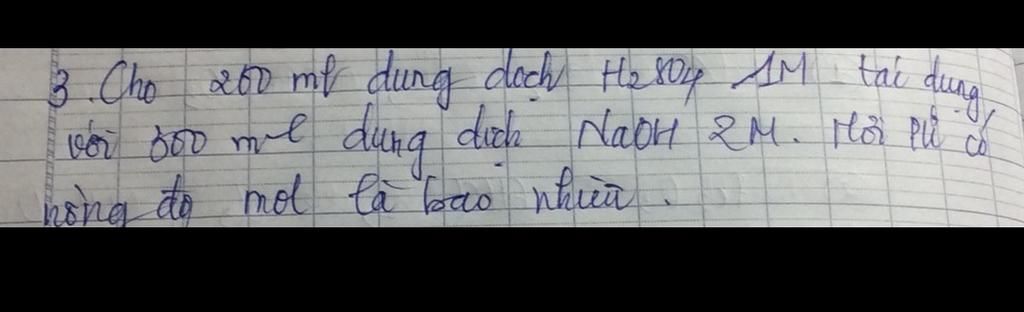 3. Cho 250 ml dung dịch H2SO4 1M tác dụng
với 300 ml dung dịch NaOH 2M. Hỏi PƯ có
nồng độ mol là bao nhiêu.